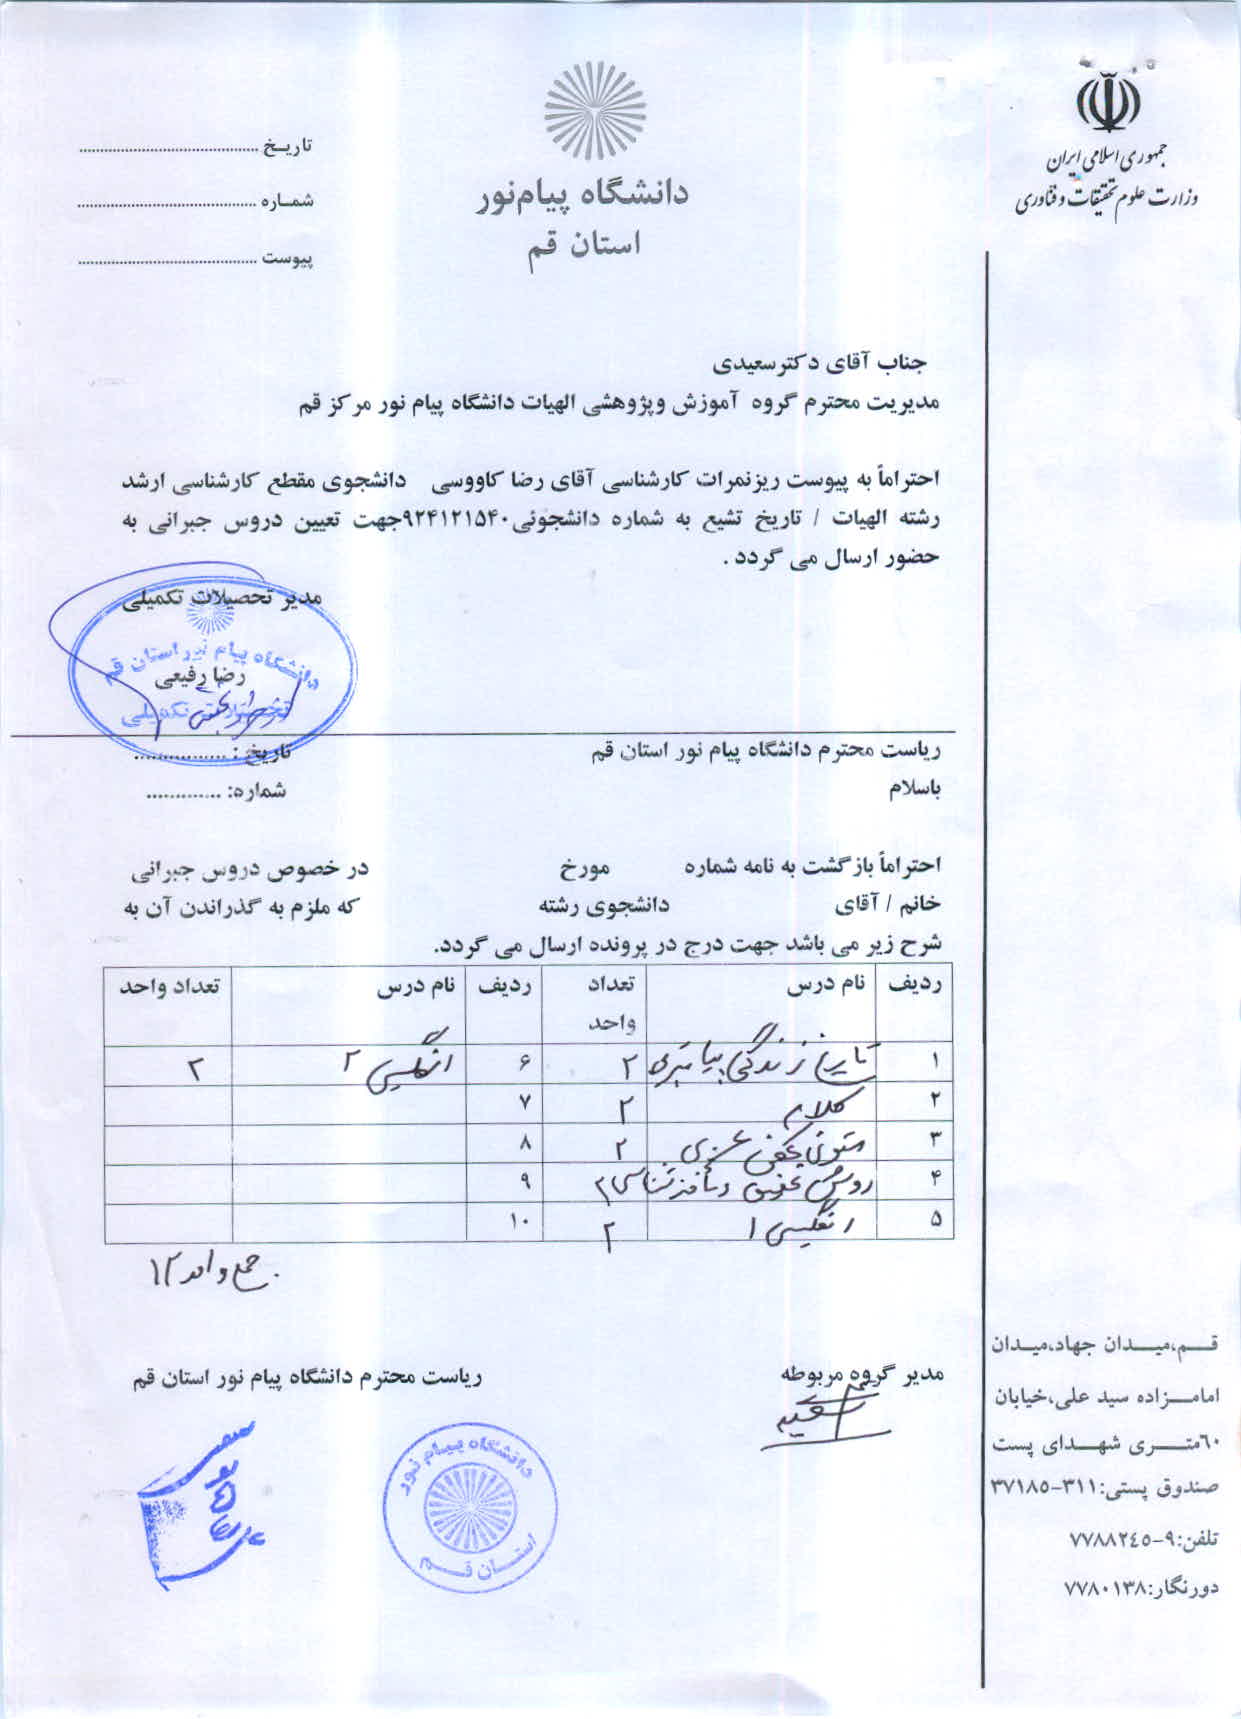 جمهوری اسلامی ایران
وزارت علوم تحقیقات و فناوری
دانشگاه پیام‌نور
استان قم
تاریـخ ............................................
شمـاره ............................................
پیوست ............................................
جناب آقای دکترسعیدی
مدیریت محترم گروه آموزش وپژوهشی الهیات دانشگاه پیام نور مرکز قم
احتراماً به پیوست ریزنمرات کارشناسی آقای رضا کاووسی دانشجوی مقطع کارشناسی ارشد
رشته الهیات / تاریخ تشیع به شماره دانشجوئی۹۲۴۱۲۱۵۴۰جهت تعیین دروس جبرانی به
حضور ارسال می گردد .
مدیر تحصیلات تکمیلی
دانشگاه پیام نور استان قم
رضا رفیعی
تحصیلات تکمیلی
ریاست محترم دانشگاه پیام نور استان قم
تاریخ : ................
باسلام
شماره: .............
احتراماً بازگشت به نامه شماره مورخ در خصوص دروس جبرانی
خانم / آقای دانشجوی رشته که ملزم به گذراندن آن به
شرح زیر می باشد جهت درج در پرونده ارسال می گردد.
ردیف نام درس تعداد واحد ردیف نام درس تعداد واحد
۱ تاریخ زندگی پیامبر ۲ ۶ انگلیسی ۲ ۲
۲ کلام ۲ ۷
۳ متون عربی ۲ ۸
۴ روش تحقیق و مأخذشناسی ۲ ۹
۵ انگلیسی ۱ ۲ ۱۰
جمع واحد ۱۲
مدیر گروه مربوطه
ریاست محترم دانشگاه پیام نور استان قم
دانشگاه پیـام نور
استــان قــم
قــم،میـدان جهاد،میـدان
امامـزاده سید علی،خیابان
۶۰متــری شهـدای پست
صندوق پستی:۳۱۱-۳۷۱۸۵
تلفن:۹-۷۷۸۸۲٤٥
دورنگار:۷۷۸۰۱۳۸